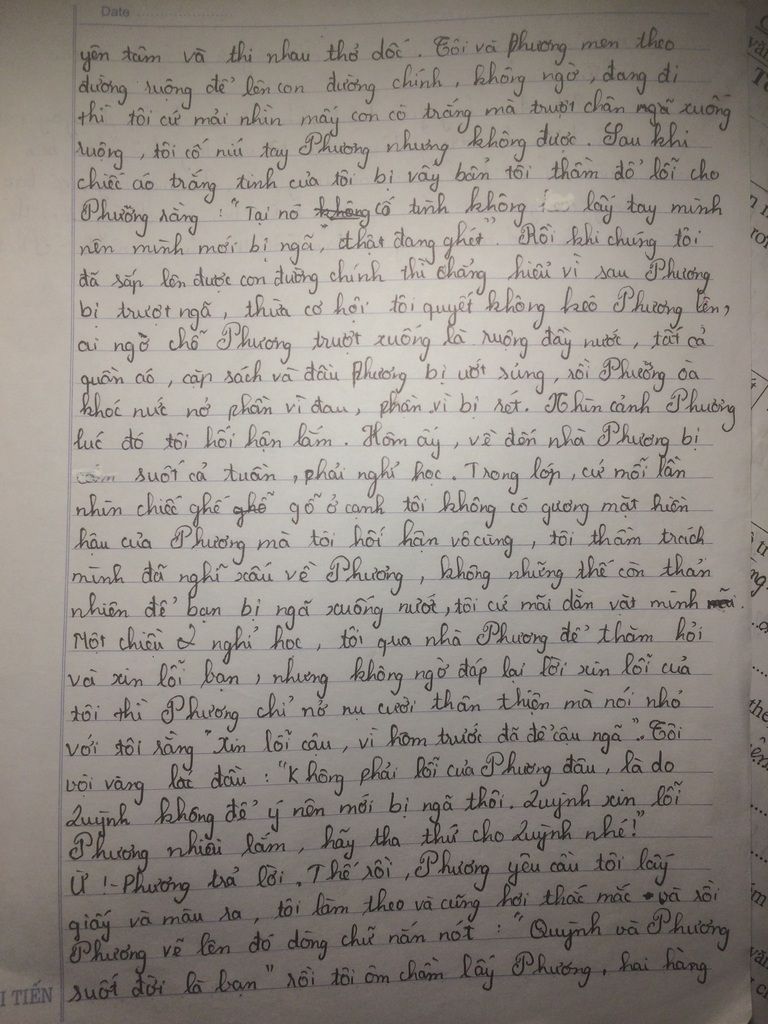 Date
yên tâm và thi nhau thở dốc. Tôi và Phương men theo
đường ruộng để lên con đường chính, không ngờ, đang đi
thì tôi cứ mải nhìn mấy con cò trắng mà trượt chân ngã xuống
ruộng, tôi cố níu tay Phương nhưng không được. Sau khi
chiếc áo trắng tinh của tôi bị vây bẩn tôi thầm đổ lỗi cho
Phường rằng: "Tại nó không cố tình không lấy tay mình
nên mình mới bị ngã", thật đang ghét". Rồi khi chúng tôi
đã sắp lên được con đường chính thì chẳng hiểu vì sau Phương
bị trượt ngã, thừa cơ hội tôi quyết không kéo Phương lên,
ai ngờ chỗ Phương trượt xuống là ruộng đầy nước, tất cả
quần áo, cặp sách và đầu Phương bị ướt sủng, rồi Phường oà
khóc nức nở phần vì đau, phần vì bị rét. Nhìn cảnh Phương
lúc đó tôi hối hận lắm. Hôm ấy, về đến nhà Phương bị
cảm suốt cả tuần, phải nghỉ học. Trong lớp, cứ mỗi lần
nhìn chiếc ghế ghỗ gỗ ở cạnh tôi không có gương mặt hiền
hậu của Phương mà tôi hối hận vô cùng, tôi thầm trách
mình đã nghĩ xấu về Phương, không những thế còn thản
nhiên để bạn bị ngã xuống nướt, tôi cứ mãi dằn vặt mình mãi.
Một chiều 2 nghỉ học, tôi qua nhà Phương để thăm hỏi
và xin lỗi bạn, nhưng không ngờ đáp lại lời xin lỗi của
tôi thì Phương chỉ nở nụ cười thân thiện mà nói nhỏ
với tôi rằng "Xin lỗi cậu, vì hôm trước đã để cậu ngã". Tôi
vội vàng lắc đầu: "Không phải lỗi của Phương đâu, là do
Quỳnh không để ý nên mới bị ngã thôi. Quỳnh xin lỗi
Phương nhiều lắm, hãy tha thứ cho Quỳnh nhé!"
Ừ!-Phương trả lời. Thế rồi, Phương yêu cầu tôi lấy
giấy và màu ra, tôi làm theo và cũng hơi thắc mắc và rồi
Phương vẽ lên đó dòng chữ nắn nót: "Quỳnh và Phương
suốt đời là bạn" rồi tôi ôm chầm lấy Phương, hai hàng
I TIẾN